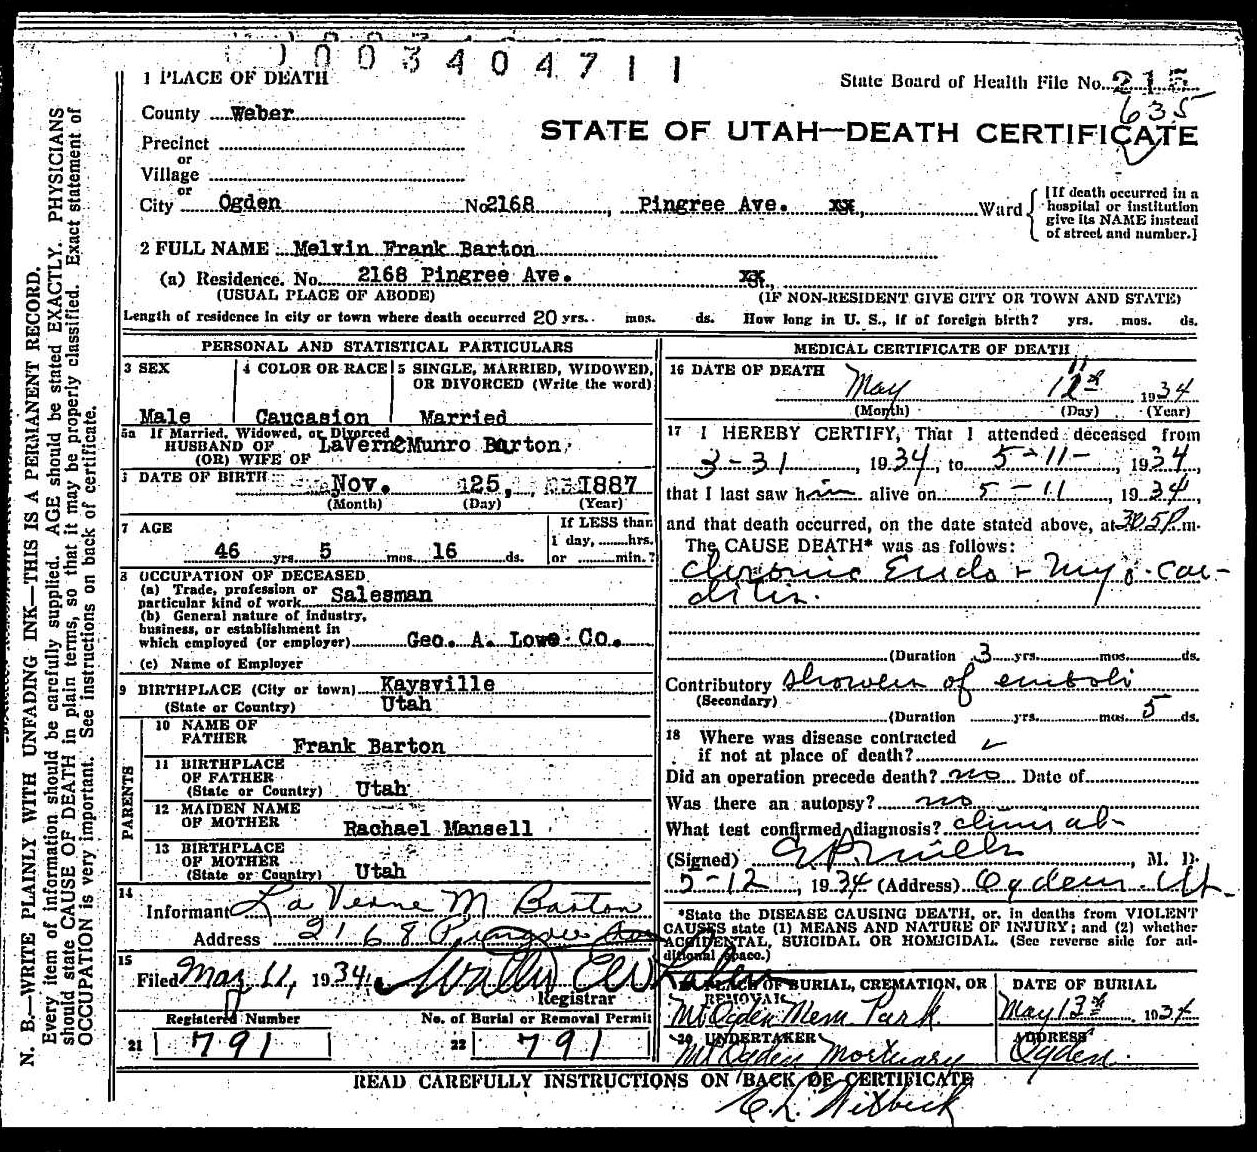 1003404711
1 PLACE OF DEATH
State Board of Health File No. 215
635
County Weber
STATE OF UTAH—DEATH CERTIFICATE
Precinct
or
Village
or
City Ogden No 2168, Pingree Ave. xx, Ward
[If death occurred in a
hospital or institution
give its NAME instead
of street and number.]
2 FULL NAME Melvin Frank Barton
(a) Residence. No. 2168 Pingree Ave. xx,
(USUAL PLACE OF ABODE) (IF NON-RESIDENT GIVE CITY OR TOWN AND STATE)
Length of residence in city or town where death occurred 20 yrs. mos. ds. How long in U. S., if of foreign birth? yrs. mos. ds.
PERSONAL AND STATISTICAL PARTICULARS
3 SEX
Male
4 COLOR OR RACE
Caucasion
5 SINGLE, MARRIED, WIDOWED,
OR DIVORCED (Write the word)
Married
5a If Married, Widowed, or Divorced
HUSBAND OF LaVerne Munro Barton
(OR) WIFE OF
DATE OF BIRTH Nov. 25, 1887
(Month) (Day) (Year)
7 AGE
46 yrs. 5 mos. 16 ds.
If LESS than
1 day, hrs.
or min.?
8 OCCUPATION OF DECEASED
(a) Trade, profession or
particular kind of work Salesman
(b) General nature of industry,
business, or establishment in
which employed (or employer) Geo. A. Lowe Co.
(c) Name of Employer
9 BIRTHPLACE (City or town) Kaysville
(State or Country) Utah
PARENTS
10 NAME OF
FATHER Frank Barton
11 BIRTHPLACE
OF FATHER
(State or Country) Utah
12 MAIDEN NAME
OF MOTHER Rachael Mansell
13 BIRTHPLACE
OF MOTHER
(State or Country) Utah
14
Informant La Verne M Barton
Address 2168 Pingree Ave
15
Filed May 11, 1934
Registrar
Registered Number
21 791
No. of Burial or Removal Permit
22 791
MEDICAL CERTIFICATE OF DEATH
16 DATE OF DEATH 11
May 12th 1934
(Month) (Day) (Year)
17 I HEREBY CERTIFY, That I attended deceased from
3-31, 1934, to 5-11-, 1934,
that I last saw him alive on 5-11, 1934,
and that death occurred, on the date stated above, at m.
The CAUSE DEATH* was as follows:
Chronic Endo + Myo-car-
ditis.
(Duration 3 yrs. mos. ds.
Contributory showers of emboli
(Secondary)
(Duration yrs. mos. 5 ds.
18 Where was disease contracted
if not at place of death?
Did an operation precede death? no Date of
Was there an autopsy? no
What test confirmed diagnosis? clinical
(Signed) M. D.
5-12, 1934 (Address) Ogden. Ut.
*State the DISEASE CAUSING DEATH, or, in deaths from VIOLENT
CAUSES state (1) MEANS AND NATURE OF INJURY; and (2) whether
ACCIDENTAL, SUICIDAL OR HOMICIDAL. (See reverse side for ad-
ditional space.)
PLACE OF BURIAL, CREMATION, OR
REMOVAL
Mt Ogden Mem. Park
DATE OF BURIAL
May 13th 1934
20 UNDERTAKER
Mt Ogden Mortuary
ADDRESS
Ogden.
READ CAREFULLY INSTRUCTIONS ON BACK OF CERTIFICATE
N. B.—WRITE PLAINLY WITH UNFADING INK—THIS IS A PERMANENT RECORD.
Every item of information should be carefully supplied. AGE should be stated EXACTLY. PHYSICIANS
should state CAUSE OF DEATH in plain terms, so that it may be properly classified. Exact statement of
OCCUPATION is very important. See instructions on back of certificate.